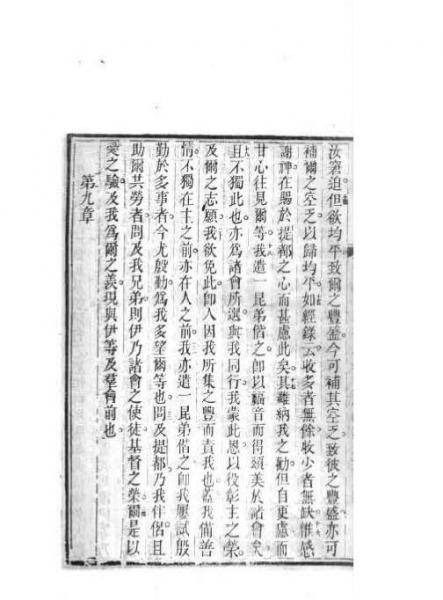 汝窘迫但欲均平致爾之豐盛今可補其空乏致彼之豐盛亦可
補爾之空乏以歸均平如經錄云收多者無餘收少者無缺惟感
謝神在賜於提都之心而甚慮此矣其雖納我之勸但自更慮而
甘心往見爾等我遣一昆弟偕之卽以福音而得頌美於諸會矣
且不獨此也亦為諸會所選與我同行我蒙此恩以役彰主之榮
及爾之志願我欲免此卽人因我所集之豐而責我也蓋我備善
情不獨在主之前亦在人之前我亦遣一昆弟偕之卽我屢試殷
勤於多事者今尤殷勤為我多望爾等也問及提都乃我伴侶且
助爾共勞者問及我兄弟則伊乃諸會之使徒基督之榮爾是以
愛之驗及我為爾之羨現與伊等及羣會前也
第九章